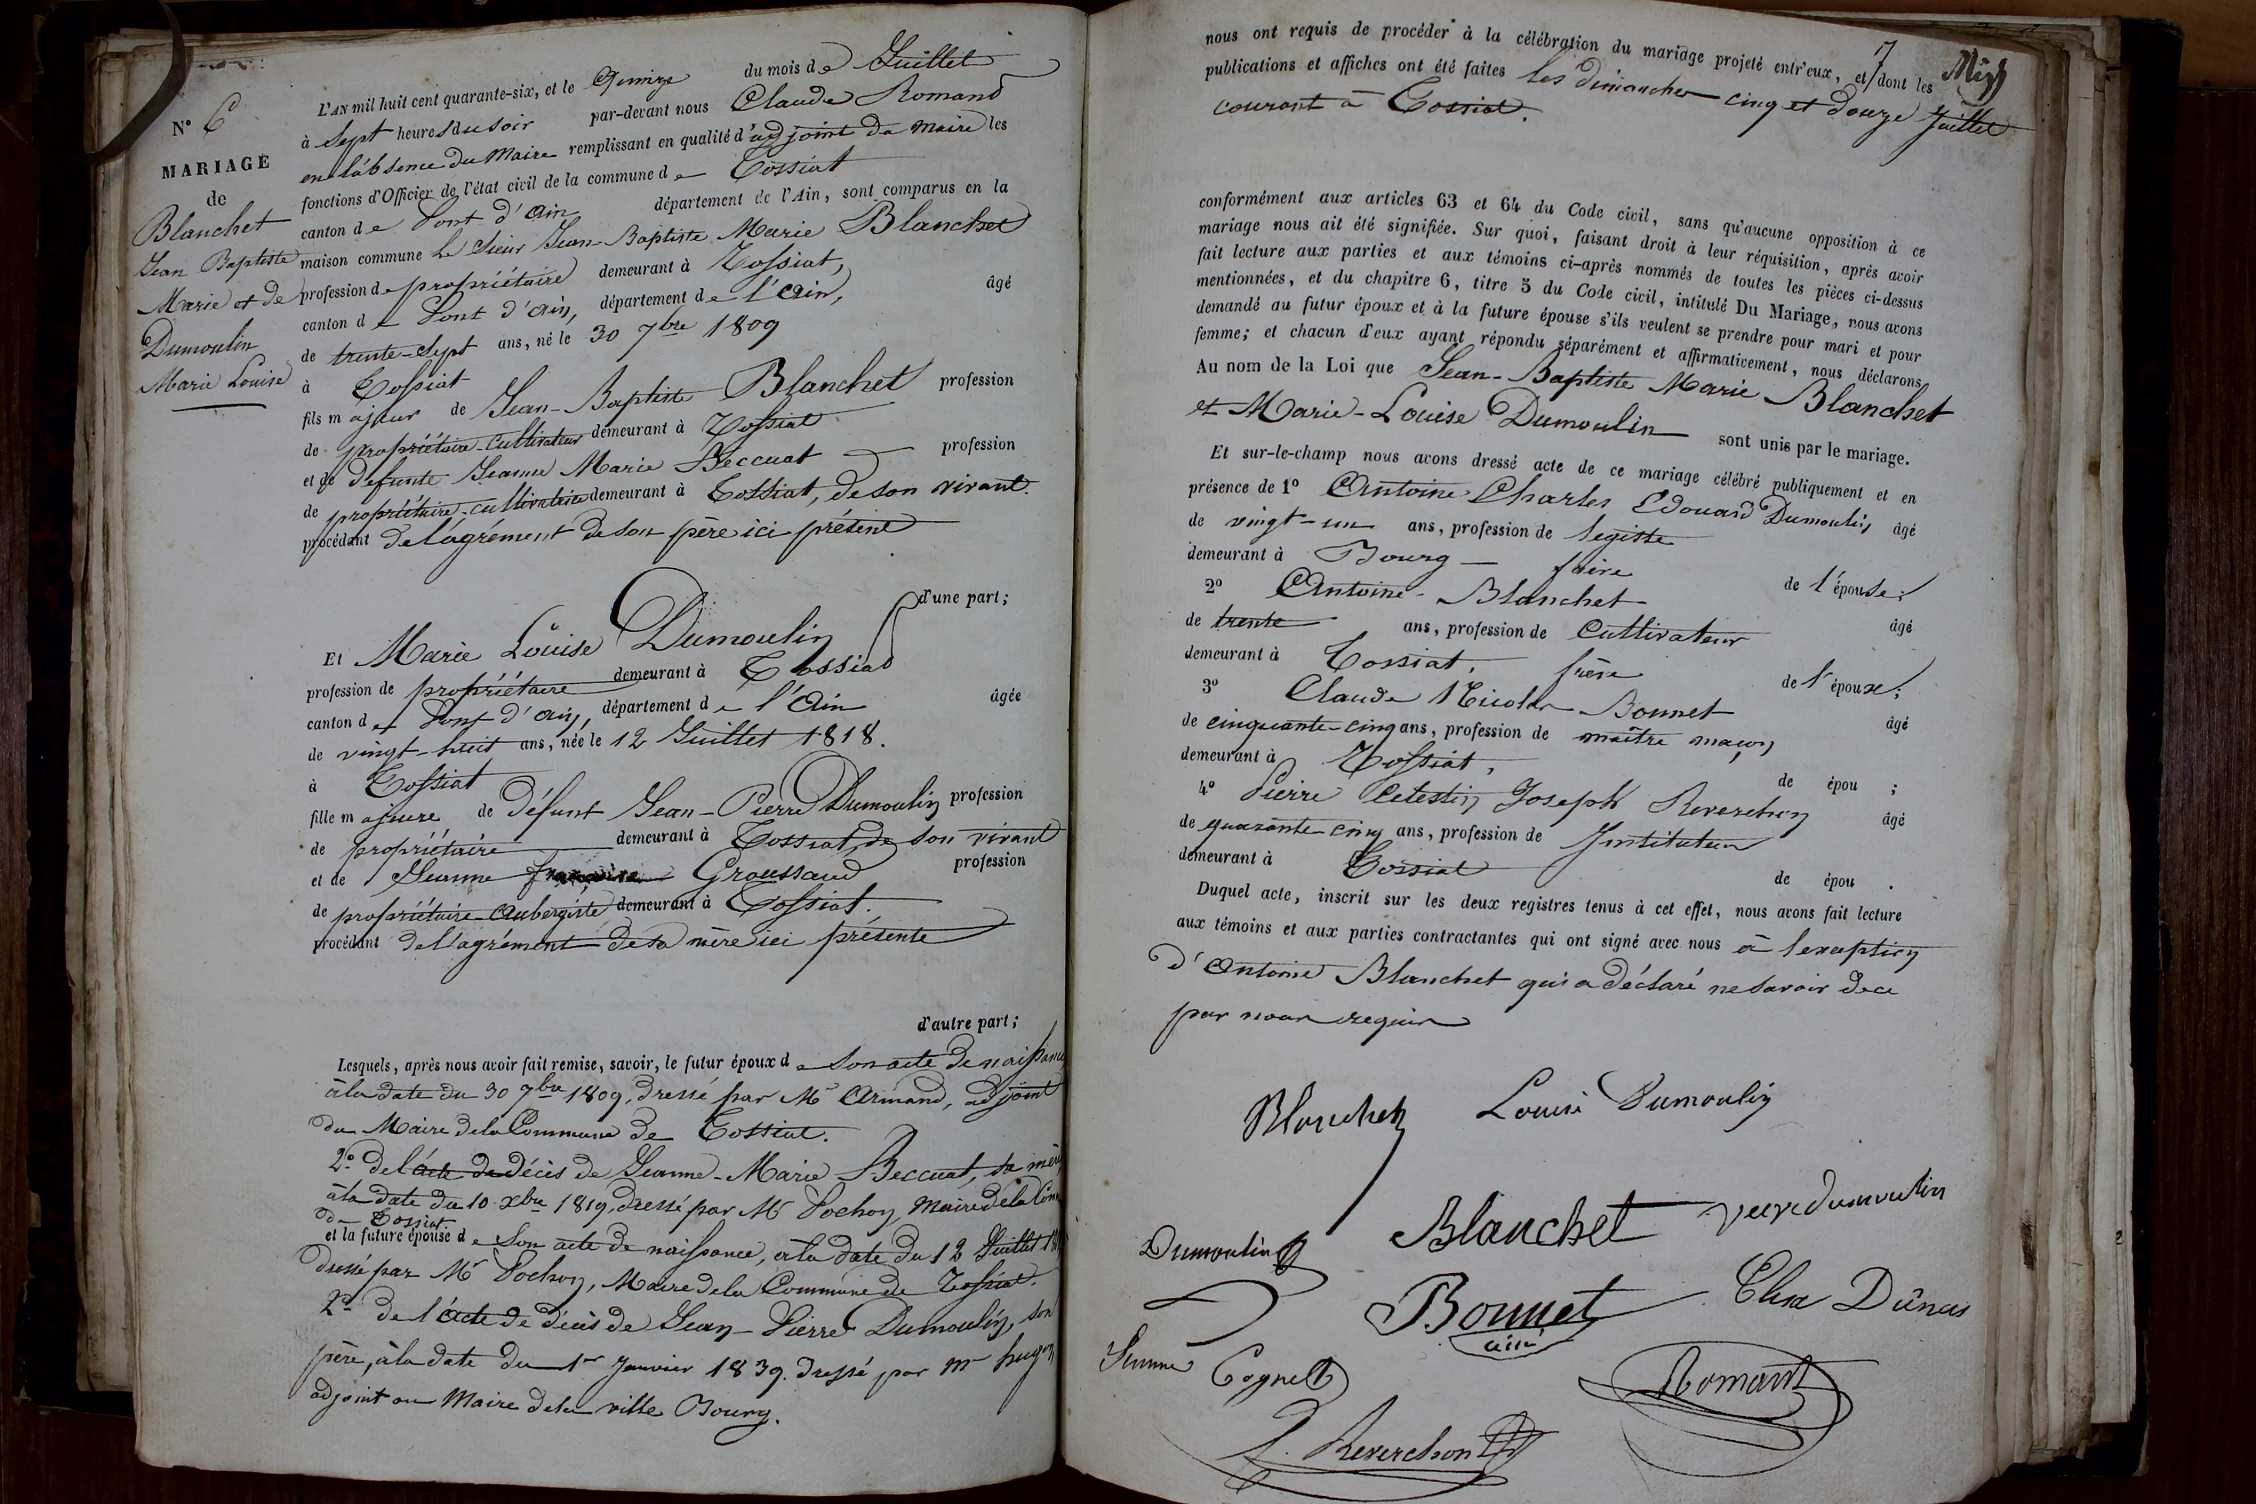 N° 6
MARIAGE
de
Blanchet
Jean Baptiste
Marie et de
Dumoulin
Marie Louise
L'AN mil huit cent quarante-six, et le Quinze du mois de Juillet
à Sept heures du soir par-devant nous Claude Romand
en l'absence du Maire remplissant en qualité d'adjoint du maire les
fonctions d'Officier de l'état civil de la commune de Tossiat
canton de Pont d'Ain département de l'Ain, sont comparus en la
maison commune Le Sieur Jean-Baptiste Marie Blanchet
profession de propriétaire demeurant à Tossiat,
canton de Pont d'Ain, département de l'Ain, âgé
de trente-sept ans, né le 30 7bre 1809
à Tossiat
fils majeur de Jean-Baptiste Blanchet profession
de propriétaire-cultivateur demeurant à Tossiat
et de défunte Jeanne Marie Beccuat profession
de propriétaire-cultivatrice demeurant à Tossiat, de son vivant.
procédant de l'agrément de son père ici présent
d'une part;
Et Marie Louise Dumoulin
profession de propriétaire demeurant à Tossiat
canton de Pont d'Ain, département de l'Ain âgée
de vingt-huit ans, née le 12 Juillet 1818.
à Tossiat
fille majeure de défunt Jean-Pierre Dumoulin profession
de propriétaire demeurant à Tossiat, de son vivant
et de Jeanne Groussaud profession
de propriétaire-aubergiste demeurant à Tossiat.
procédant de l'agrément de sa mère ici présente
d'autre part;
Lesquels, après nous avoir fait remise, savoir, le futur époux de son acte de naissance
à la date du 30 7bre 1809, dressé par Mr Armand, adjoint
du Maire de la Commune de Tossiat.
2° de l'acte de décès de Jeanne-Marie Beccuat, sa mère
à la date du 10 xbre 1819, dressé par Mr Pochon, Maire de la Com
de Tossiat.
et la future épouse de son acte de naissance, à la date du 12 Juillet 18
dressé par Mr Pochon, Maire de la Commune de Tossiat.
2° de l'acte de décès de Jean-Pierre Dumoulin, son
père, à la date du 1er Janvier 1839. dressé par Mr hugon
adjoint au Maire de la ville Bourg.
7
nous ont requis de procéder à la célébration du mariage projeté entr'eux, et dont les
publications et affiches ont été faites les dimanches cinq et douze Juillet
courant à Tossiat.
conformément aux articles 63 et 64 du Code civil, sans qu'aucune opposition à ce
mariage nous ait été signifiée. Sur quoi, faisant droit à leur réquisition, après avoir
fait lecture aux parties et aux témoins ci-après nommés de toutes les pièces ci-dessus
mentionnées, et du chapitre 6, titre 5 du Code civil, intitulé Du Mariage, nous avons
demandé au futur époux et à la future épouse s'ils veulent se prendre pour mari et pour
femme; et chacun d'eux ayant répondu séparément et affirmativement, nous déclarons
Au nom de la Loi que Jean-Baptiste Marie Blanchet
et Marie-Louise Dumoulin sont unis par le mariage.
Et sur-le-champ nous avons dressé acte de ce mariage célébré publiquement et en
présence de 1° Antoine Charles Edouard Dumoulin âgé
de vingt-un ans, profession de légiste
demeurant à Bourg frère de l'épouse;
2° Antoine Blanchet âgé
de trente ans, profession de cultivateur
demeurant à Tossiat, frère de l'époux;
3° Claude Nicolas Bonnet âgé
de cinquante-cinq ans, profession de maître maçon
demeurant à Tossiat, de épou ;
4° Pierre Celestin Joseph Reverchon âgé
de quarante-cinq ans, profession de Instituteur
demeurant à Tossiat de épou .
Duquel acte, inscrit sur les deux registres tenus à cet effet, nous avons fait lecture
aux témoins et aux parties contractantes qui ont signé avec nous à l'exception
d'Antoine Blanchet qui a déclaré ne savoir de ce
par nous requis
Blanchet Louise Dumoulin
Blanchet veuve dumoulin
Dumoulin
Bonnet
ainé
Jeanne Cognet
Romand
Reverchon
2